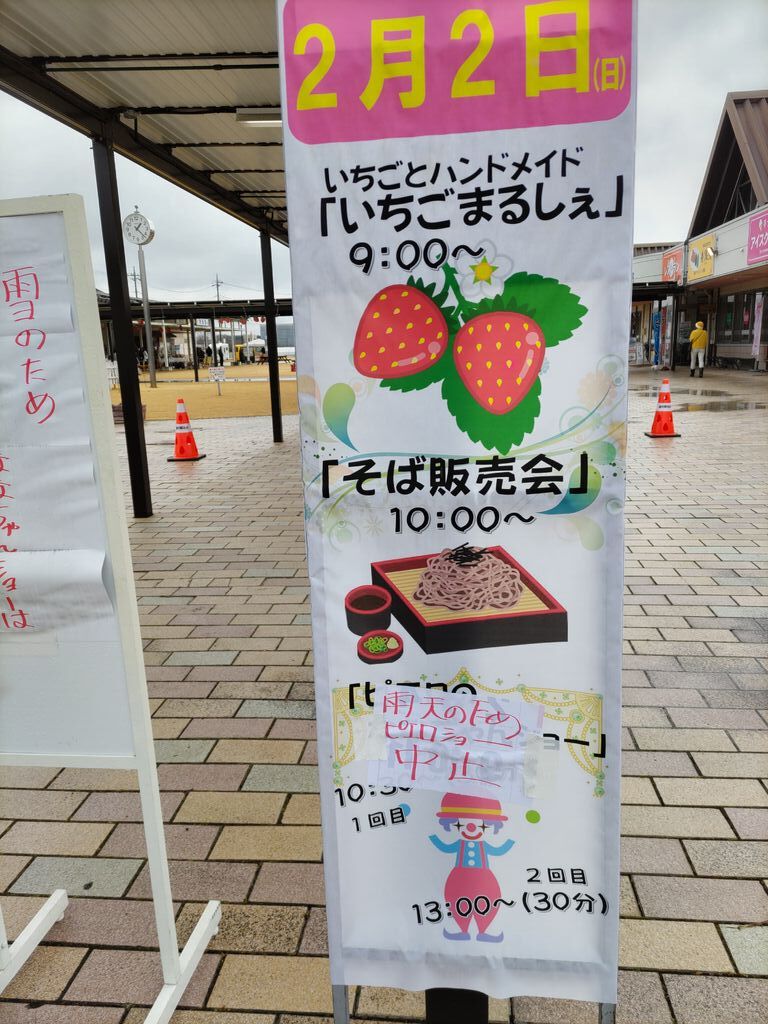 2月2日(日)
いちごとハンドメイド
「いちごまるしぇ」
9:00～
「そば販売会」
10:00～
雨天のため
ピエロショー
中止
ョー」
1回目
2回目
13:00～(30分)
雨のため
ショーは